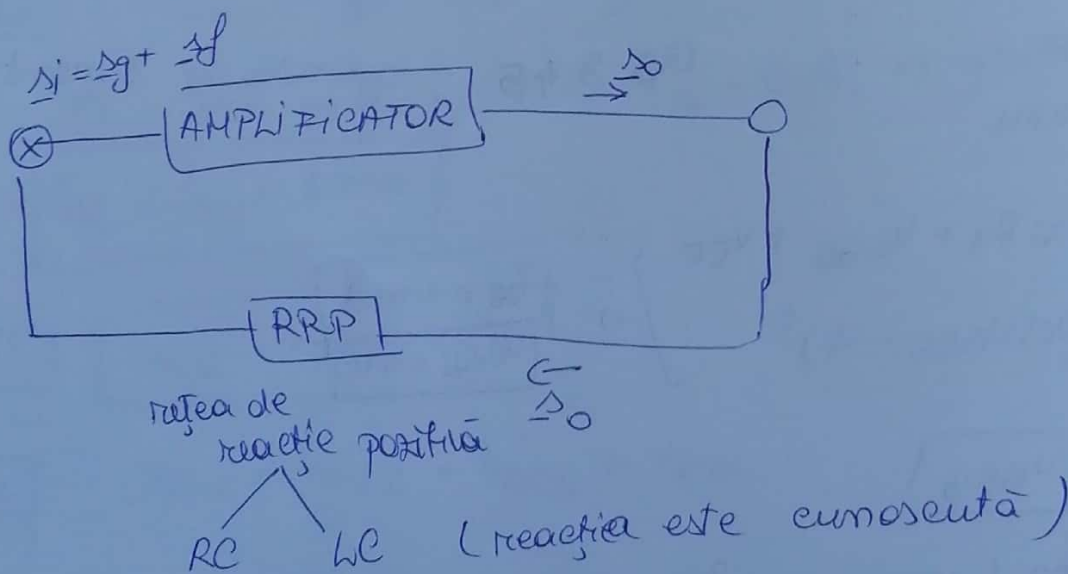 si = sg + sf
so
AMPLIFICATOR
RRP
so
rețea de
reacție pozitivă
RC LC (reacția este cunoscută)